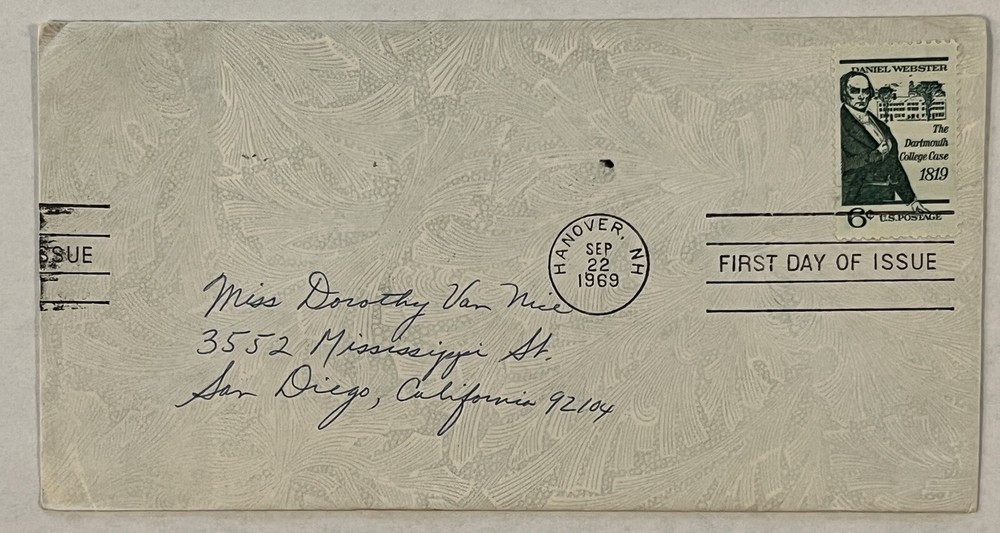 DANIEL WEBSTER
The
Dartmouth
College Case
1819
6¢ U.S. POSTAGE
HANOVER, NH
SEP
22
1969
FIRST DAY OF ISSUE
SSUE
Miss Dorothy Van Nice
3552 Mississippi St.
San Diego, California 92104